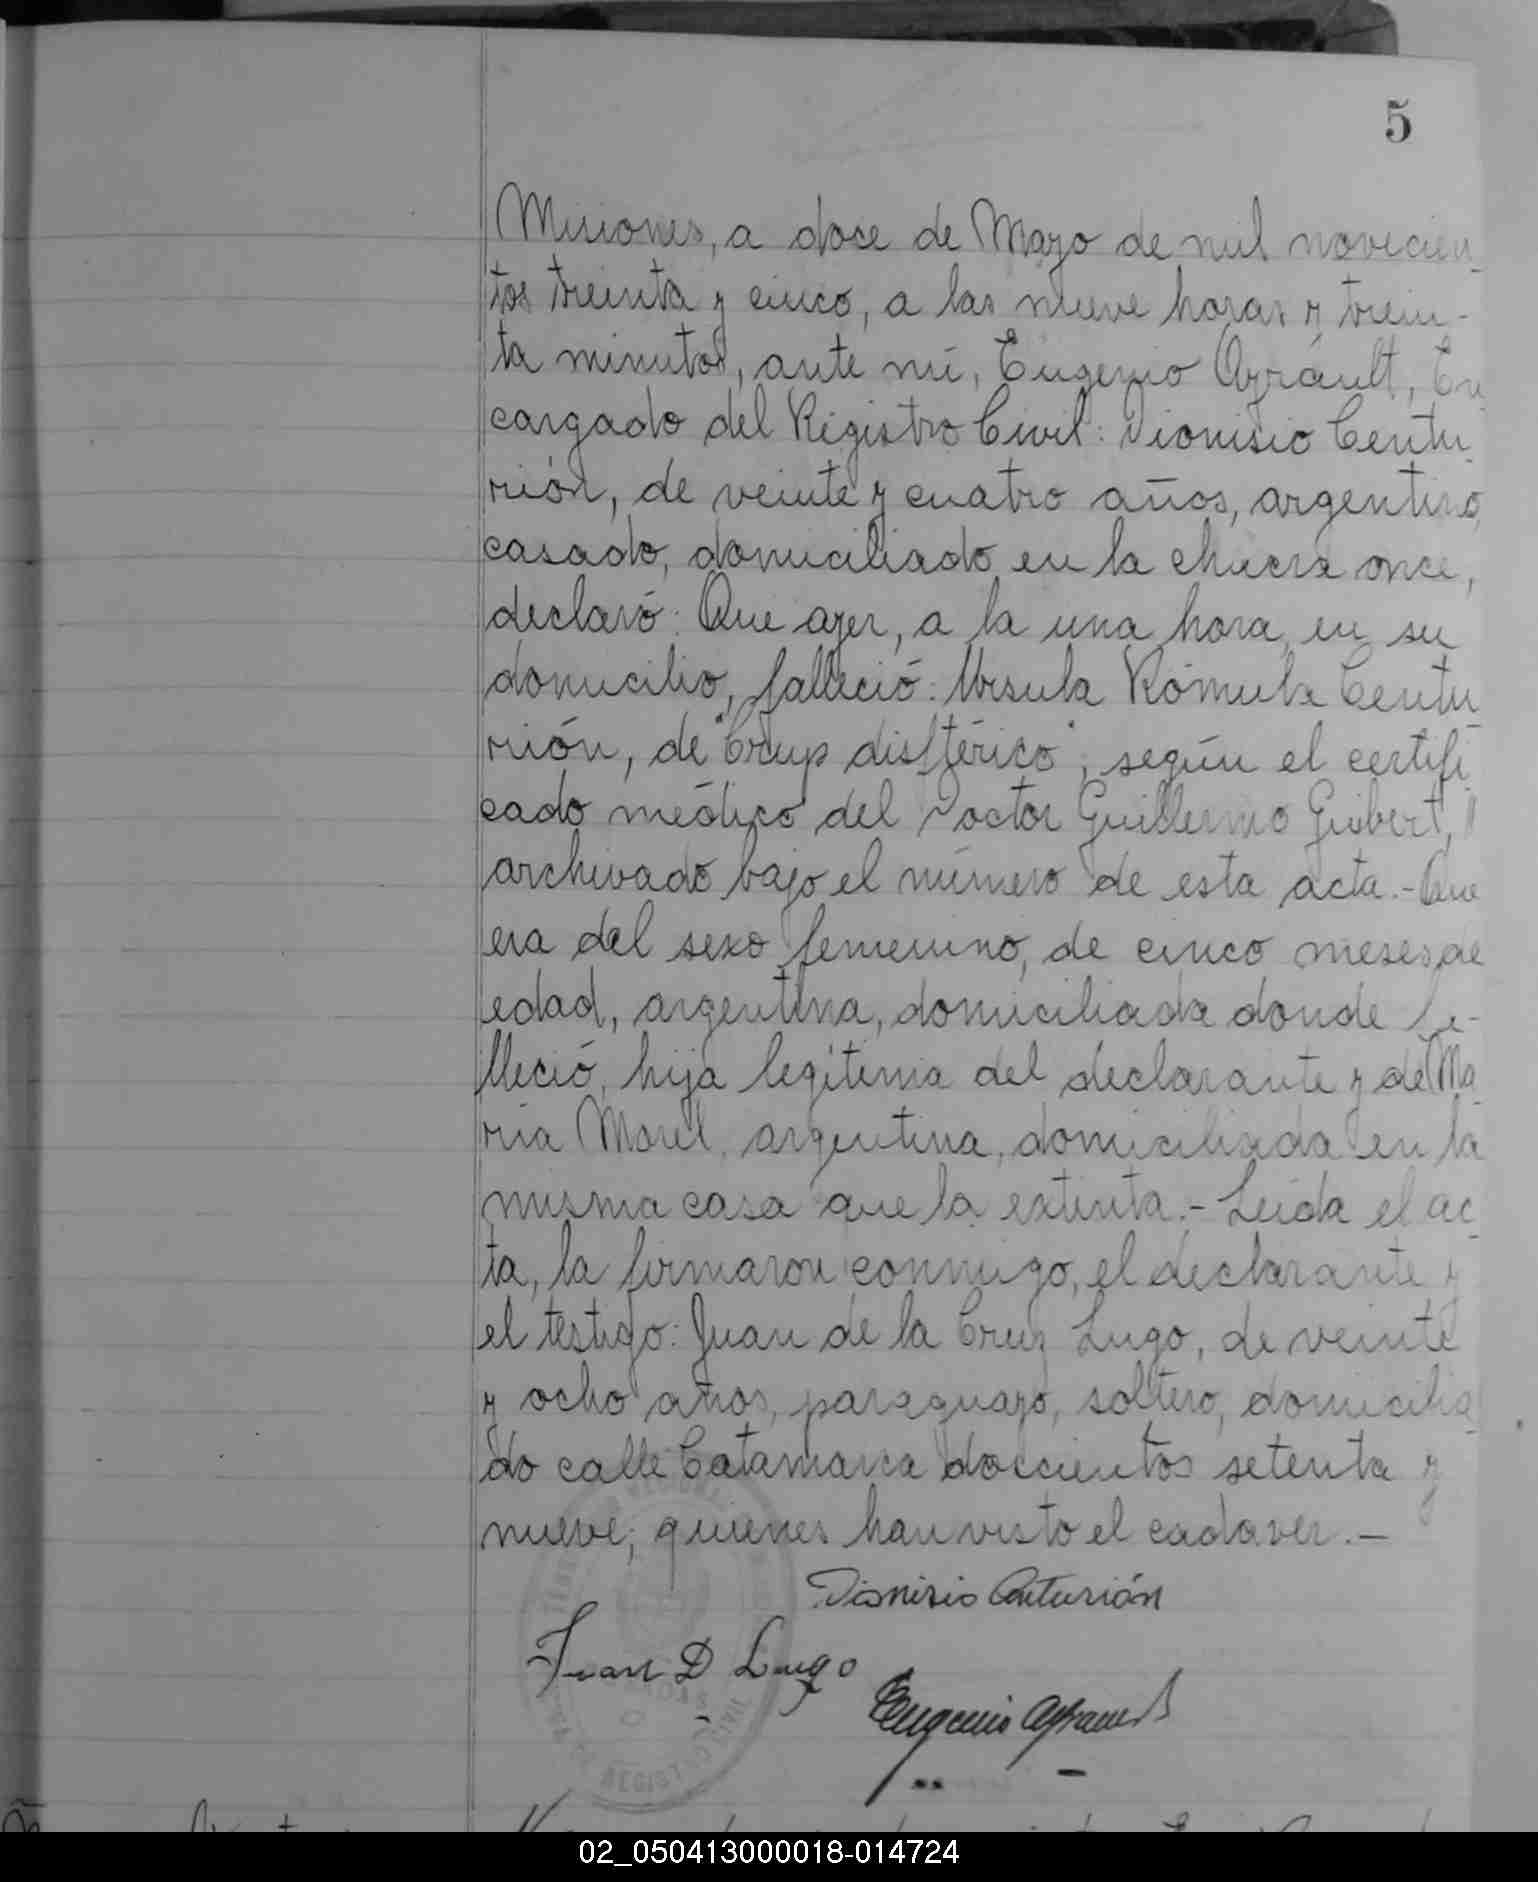 5
Misiones, a doce de Mayo de mil novecien-
tos treinta y cinco, a las nueve horas y trein-
ta minutos, ante mí, Eugenio Ayrault, En
cargado del Registro Civil: Dionisio Centu
rión, de veinte y cuatro años, argentino,
casado, domiciliado en la chacra once,
declaró: Que ayer, a la una hora, en su
domicilio, falleció: Ursula Rómula Centu
rión, de "Crup disftérico", según el certifi
cado médico del Doctor Guillermo Gibert,
archivado bajo el número de esta acta.- Que
era del sexo femenino, de cinco meses de
edad, argentina, domiciliada donde fa-
lleció, hija legítima del declarante y de Ma
ria Morel, argentina, domiciliada en la
misma casa que la extinta.- Leída el ac
ta, la firmaron conmigo, el declarante y
el testigo: Juan de la Cruz Lugo, de veinte
y ocho años, paraguayo, soltero, domicilia
do calle Catamarca doscientos setenta y
nueve; quienes han visto el cadaver.-
Dionisio Centurión
Juan D Lugo
Eugenio Ayrault
02_050413000018-014724